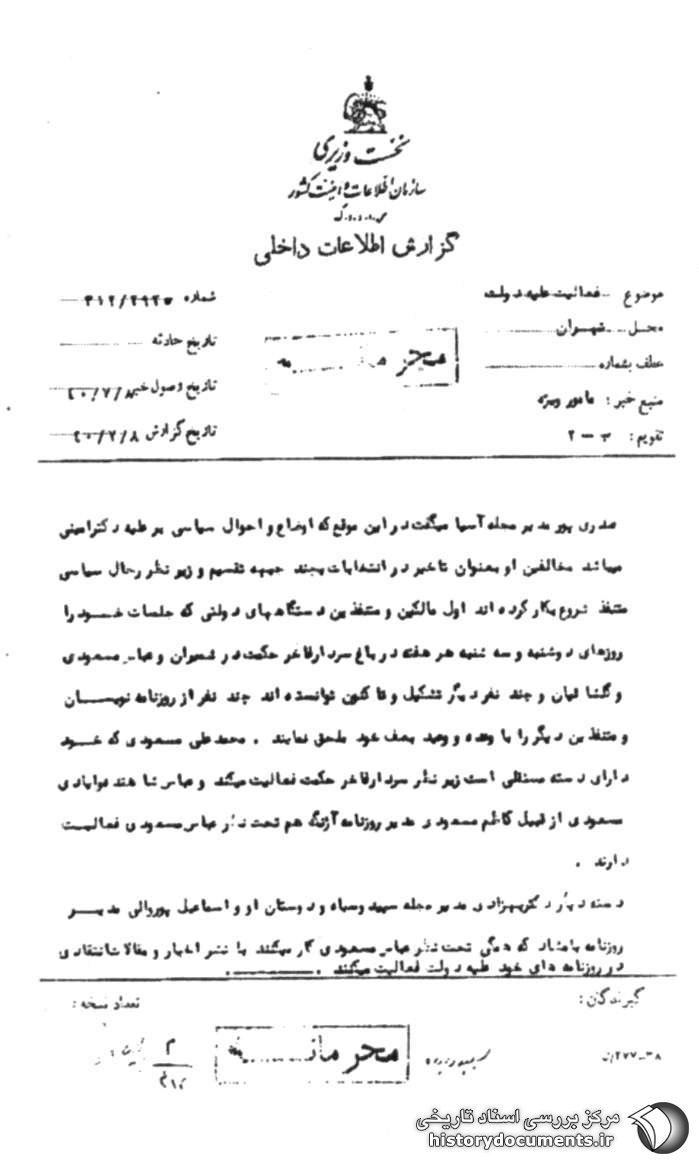 نخست وزیری
سازمان اطلاعات و امنیت کشور
س.ا.و.ا.ک
گزارش اطلاعات داخلی
موضوع فعالیت علیه دولت
شماره ۳۱۲/۲۹۲۵
محل تهران
تاریخ حادثه
محرمانه
عطف بشماره
تاریخ وصول خبر ۴۰/۷/۸
منبع خبر: مامور ویژه
تاریخ گزارش ۴۰/۷/۸
تقویم: ب - ۲
صدری پور مدیر مجله آسیا میگفت در این موقع که اوضاع و احوال سیاسی بر علیه دکتر امینی
میباشد مخالفین او بعنوان تاخیر در انتخابات بچند جبهه تقسیم و زیر نظر رجال سیاسی
متنفذ شروع بکار کرده اند اول مالکین و متنفذین دستگاههای دولتی که جلسات خود را
روزهای دوشنبه و سه شنبه هر هفته در باغ سردار فاخر حکمت در شمیران و عباس مسعودی
و گلشائیان و چند نفر دیگر تشکیل و تا کنون توانسته اند چند نفر از روزنامه نویسان
و متنفذین دیگر را با وعده و وعید بصف خود ملحق نمایند . محمدعلی مسعودی که خود
دارای دسته مستقلی است زیر نظر سردار فاخر حکمت فعالیت میکند و عباس شاهنده وایادی
مسعودی از قبیل کاظم مسعودی مدیر روزنامه آژنگ هم تحت نظر عباس مسعودی فعالیت
دارند .
دسته دیگر دکتر بهزادی مدیر مجله سپید و سیاه و دوستان او و اسماعیل پوروالی مدیر
روزنامه بامشاد که همگی تحت نظر عباس مسعودی کار میکنند با نشر اخبار و مقالات انتقادی
در روزنامه های خود علیه دولت فعالیت میکنند .
گیرندگان:
تعداد نسخه:
محرمانه
۳۸-۲۷۷/ن
مرکز بررسی اسناد تاریخی
historydocuments.ir